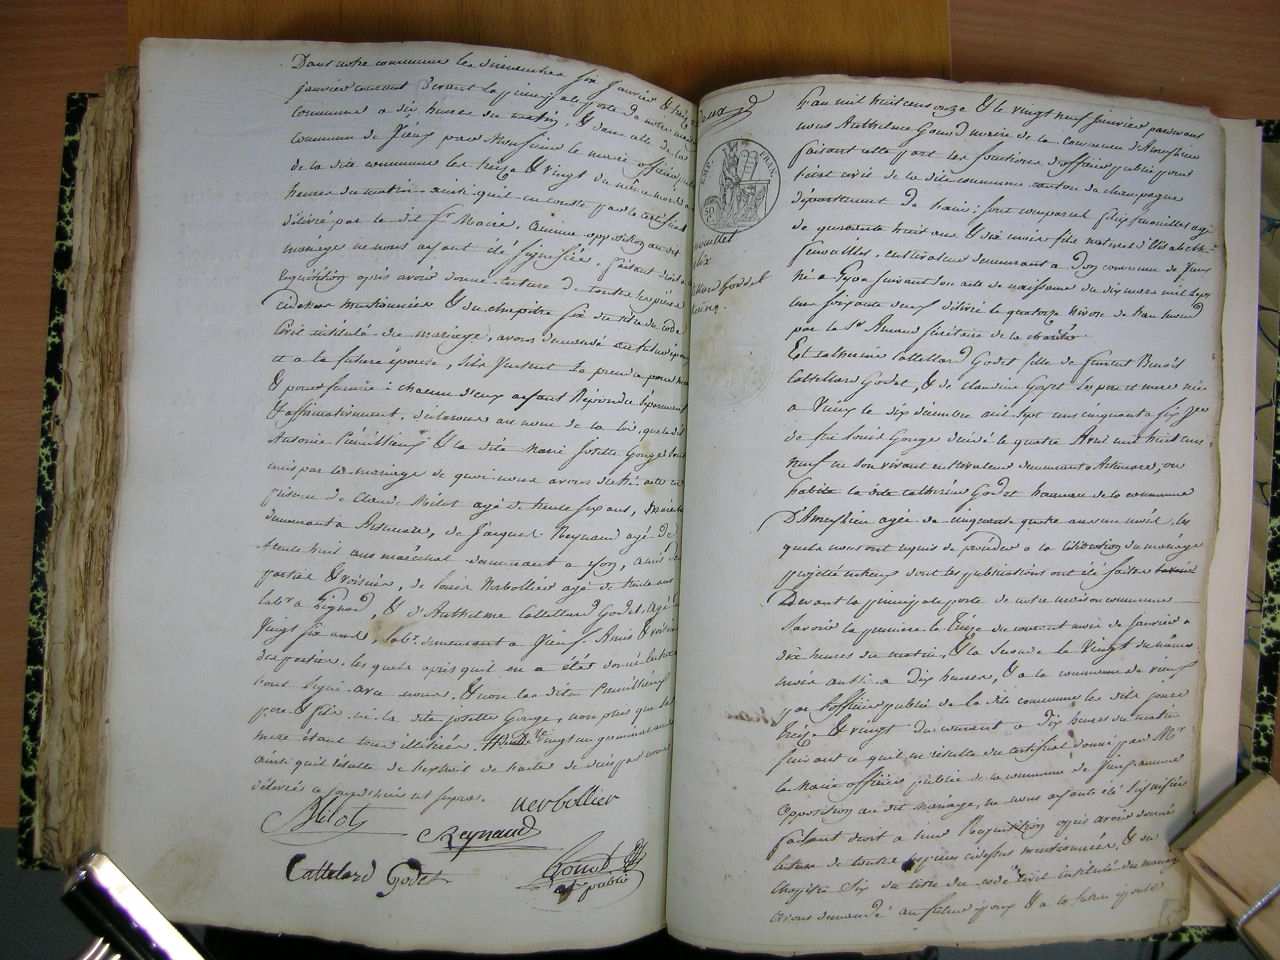 Dans notre commune les dimanches six janvier & treize
janvier courant devant la principale porte de notre maison
commune a dix heures du matin, & dans celle de la
commune de Vieux par Monsieur le maire officier public
de la dite commune les treize & vingt du même mois a
heures du matin ainsi qu'il en conste par le certificat
délivré par le dit Sr Maire. Aucune opposition au dit
mariage ne nous ayant été signifiée, faisant droit a
requisition après avoir donné lecture de toutes les pièces
cidessus mentionnées & du chapitre six du titre du code
Civil intitulé du mariage, avons demandé au futur époux
et a la future épouse, s'ils veulent se prendre pour mari
& pour femme : chacun d'eux ayant Répondu séparément
& affirmativement, déclarons au nom de la loi, que le dit
Antoine & la dite Marie Josette Gouge sont
unis par le mariage de quoi nous avons dressé acte en
présence de Claude Milot agé de trente six ans,
demeurant a Artemare, de Jacques Reynaud agé de
trente huit ans maréchal demeurant a Yon, amis des
parties & voisins, de Louis Nerbollier agé de trente ans
labr a , & d'Anthelme Cattelard Godet, agé de
Vingt six ans, labr. demeurant a Vieux. Amis & voisins
des parties. les quels après qu'il en a été donné lecture
ont signé avec nous, & non les dits
père & fils ni la dite Josette Gouge, non plus que sa
mère étant tous illitérés. vingt un germinal
ainsi qu'il résulte de l'extrait de
délivrés
Milot
Nerbollier
Reynaud
Cattelard Godet
Gonod
off public
deux
EMP. FRAN.
Felix
L'an mil huit cens onze & le vingt neuf janvier pardevant
nous Anthelme Gonod maire de la commune d'Ameyzieu
faisant cette part les fonctions d'officier public pour
l'etat civil de la dite commune canton de champagne
département de l'ain : sont comparus Felix agé
de quarante huit ans & dix mois fils naturel d'Elisabeth
cultivateur demeurant a Don commune de Vieux
né a Lyon suivant son acte de naissance du dix mars mil sept
cens soixante deux délivré le quatorze Nivose de l'an neuf
par le Sr Secrétaire de la charité
Et Catherine Cattellard Godet fille de Benoit
Cattellard Godet, & de Claudine Goyet ses père et mère née
a Vieux le dix décembre mil sept cens cinquante six
de feu Louis Gouges décédé le quatre Avril mil huit cens
neuf en son vivant cultivateur demeurant a Artemare, ou
habite la dite Catherine Godet hameau de la commune
D'Ameyzieu agée de cinquante quatre ans un mois. les
quels nous ont requis de procéder a la célébration du mariage
projetté entr'eux dont les publications ont été faites
Devant la principale porte de notre maison commune
Savoir la première le treize du courant mois de janvier a
dix heures du matin, & la seconde le vingt du même
mois aussi a dix heures, & a la commune de Vieux
par l'officier public de la dite commune les dits jours
treize & vingt du courant a dix heures du matin
suivant ce qu'il en résulte du certificat donné par Mr
le Maire officier public de la commune de Vieux aucune
opposition au dit mariage, ne nous ayant été signifiée
faisant droit a leur Requisition après avoir donné
lecture de toutes les pièces cidessus mentionnées, & du
chapitre Six du titre du code civil intitulé du mariage
avons demandé au futur époux & a la future épouse